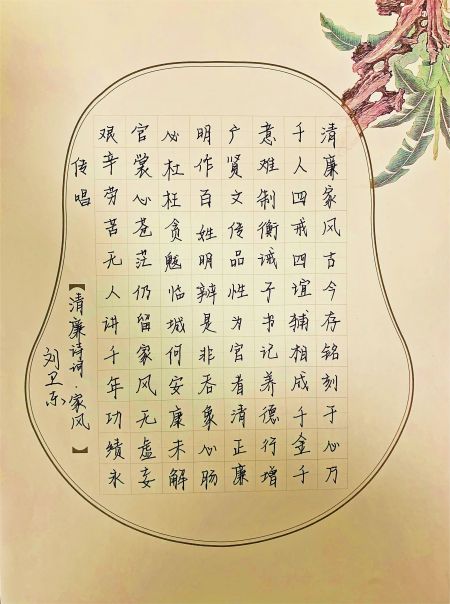 清廉家风古今存铭刻于心万
千人四戒四谊辅相成千金千
意难制衡诫子书记养德行增
广贤文传品性为官者清正廉
明作百姓明辨是非吞象心肠
心杠枉贪魅临城何安康未解
官裳心苍茫仍留家风无虚妄
艰辛劳苦无人讲千年功绩永
传唱
【清廉诗词·家风】
刘卫东